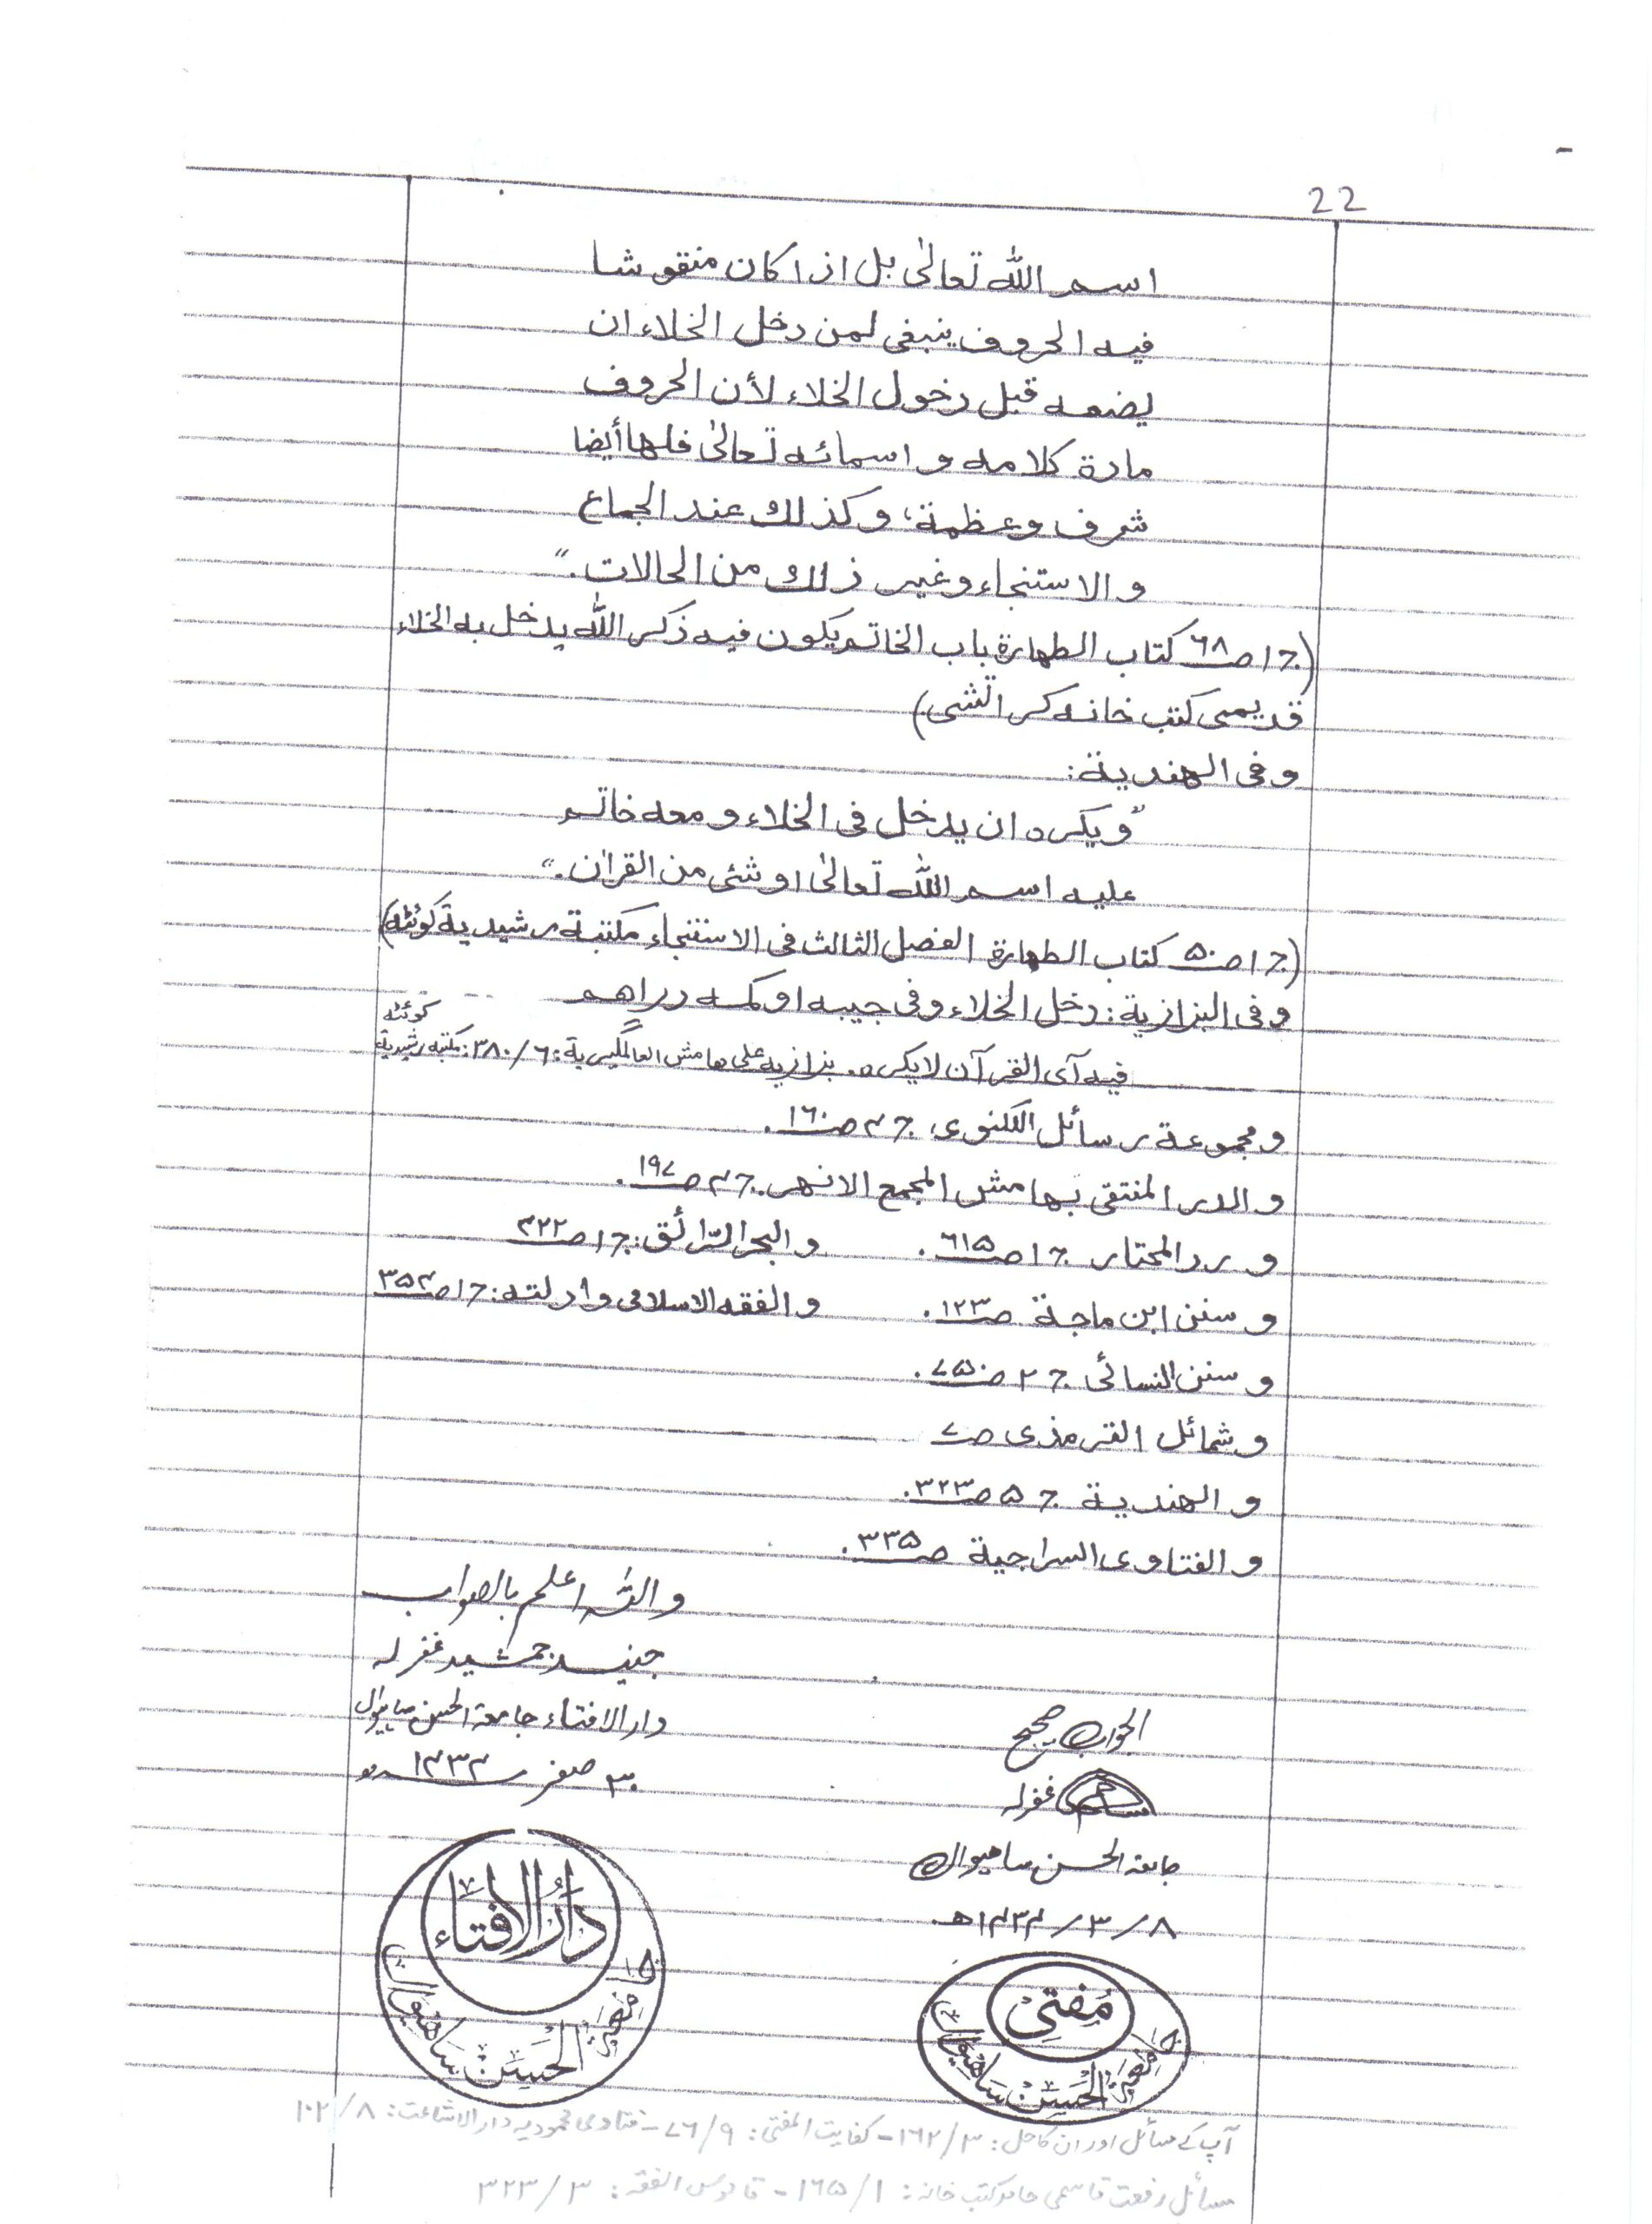 22
اسم اللہ تعالیٰ بل اذا کان منقوشا
فیہ الحروف ینبغی لمن دخل الخلاء ان
یضعہ قبل دخول الخلاء لأن الحروف
مادة کلامہ و اسمائہ تعالیٰ فلها أیضا
شرف وعظمة، وکذلک عند الجماع
و الاستنجاء وغیر ذلک من الحالات."
(ج۱ ص۶۸ کتاب الطهارة باب الخاتم یکون فیہ ذکر اللہ یدخل بہ الخلاء
قدیمی کتب خانہ کراتشی)
وفی الهندیة:
"ویکرہ ان یدخل فی الخلاء و معہ خاتم
علیہ اسم اللہ تعالیٰ او شئ من القرآن."
(ج۱ ص۵۰ کتاب الطهارة الفصل الثالث فی الاستنجاء مکتبة رشیدیة کوئٹہ)
وفی البزازیة: دخل الخلاء وفی جیبہ او کمہ دراهم
فیہ آی القرآن لا یکرہ. بزازیہ علی هامش العالمگیریة: ۶/۳۸۰: مکتبہ رشیدیة کوئٹہ
و مجموعة رسائل اللکنوی ج۴ ص۱۶۰.
و الدر المنتقی بهامش المجمع الانهر ج۴ ص۱۹۷.
و رد المحتار ج۱ ص۶۱۵. و البحر الرّائق: ج۱ ص۴۲۲
و سنن ابن ماجة ص۱۲۳. و الفقہ الاسلامی وادلتہ: ج۱ ص۳۵۴
و سنن النسائی ج۲ ص۷۵۰.
و شمائل الترمذی ص۷
و الهندیة ج۵ ص۳۲۳.
و الفتاوی السراجیة ص۳۳۵.
واللہ اعلم بالصواب
جنید جمشید غفرلہ
دارالافتاء جامعة الحسن ساہیوال
۳۰ صفر ۱۴۳۴ھ
الجواب صحیح
غفرلہ
جامعہ الحسن ساہیوال
۸/۳/۱۴۳۴ھ
دَارُ الافتَاء
الحَسَن ساهیوال
مُفتِی
الحَسَن ساهیوال
آپ کے مسائل اور ان کا حل: ۳/۱۶۲- کفایت المفتی: ۹/۷۶- فتاوی محمودیہ دار الاشاعت: ۸/۱۰۲
مسائل رفعت قاسمی حامد کتب خانہ: ۱/۱۶۵- قاموس الفقہ: ۳/۳۲۳